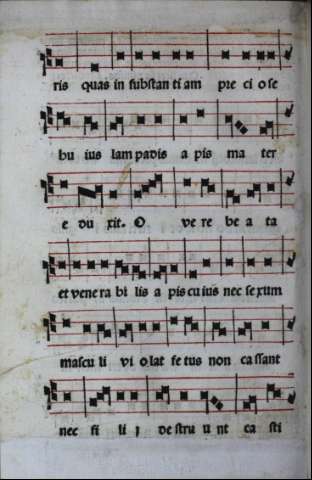 ris quas in substan ti am pre ci o se
hu ius lam padis a pis ma ter
e du xit. O ve re be a ta
et vene ra bi lis a pis cu ius nec se xum
mascu li vi o lat fe tus non ca ssant
nec fi li j destru u nt ca sti